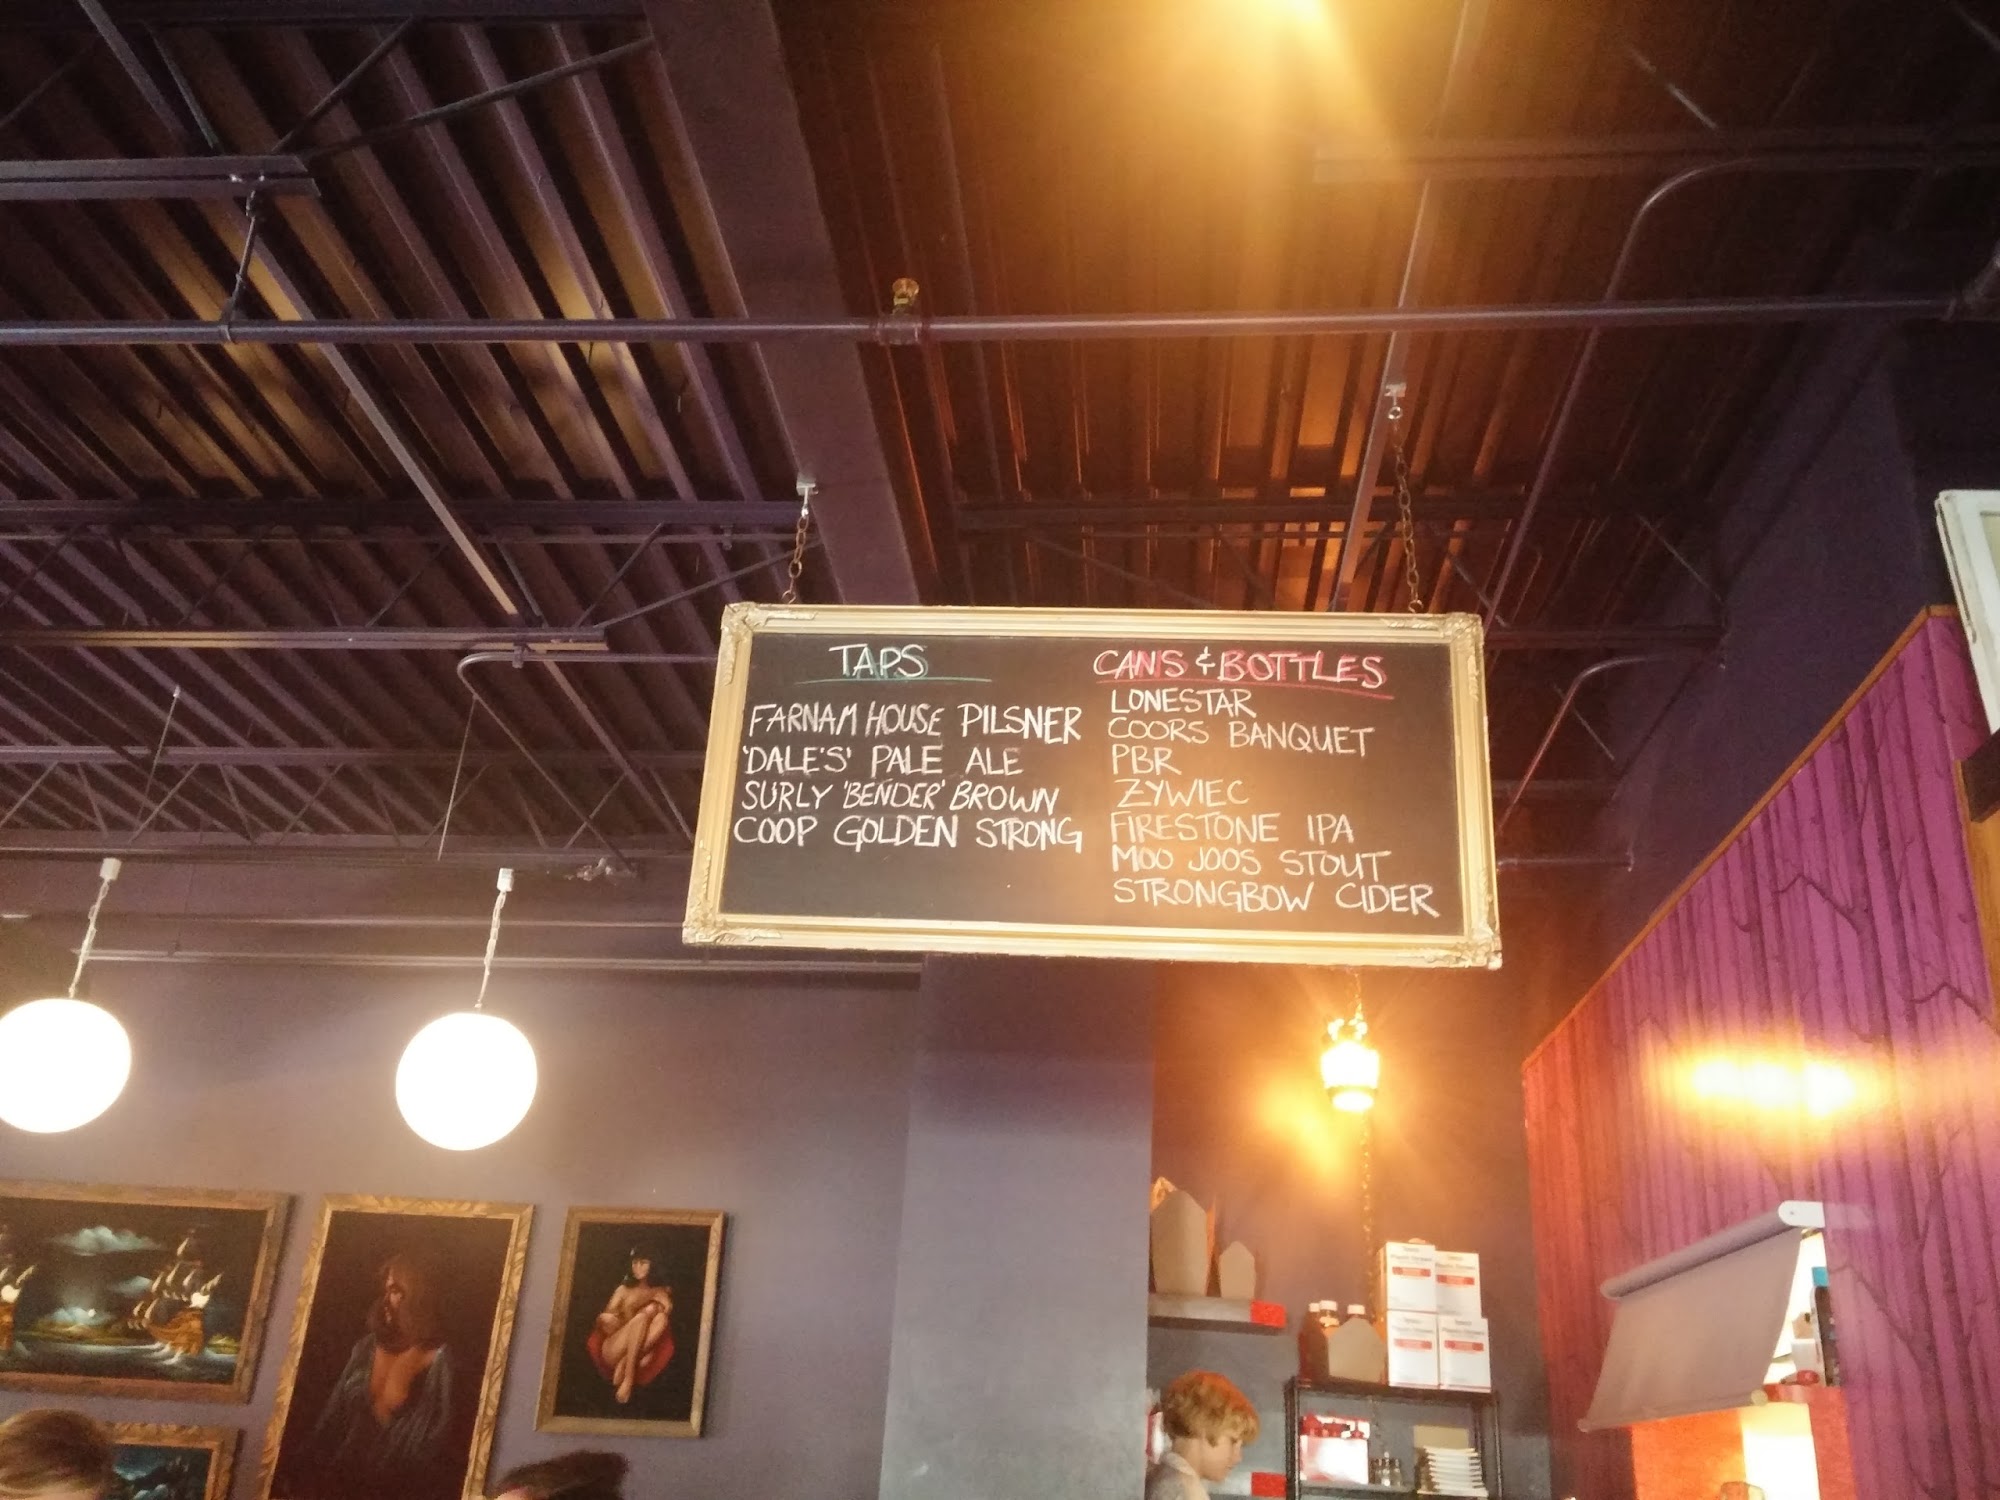 TAPS
FARNAM HOUSE PILSNER
'DALE'S' PALE ALE
SURLY 'BENDER' BROWN
COOP GOLDEN STRONG
CANS & BOTTLES
LONESTAR
COORS BANQUET
PBR
ZYWIEC
FIRESTONE IPA
MOO JOOS STOUT
STRONGBOW CIDER